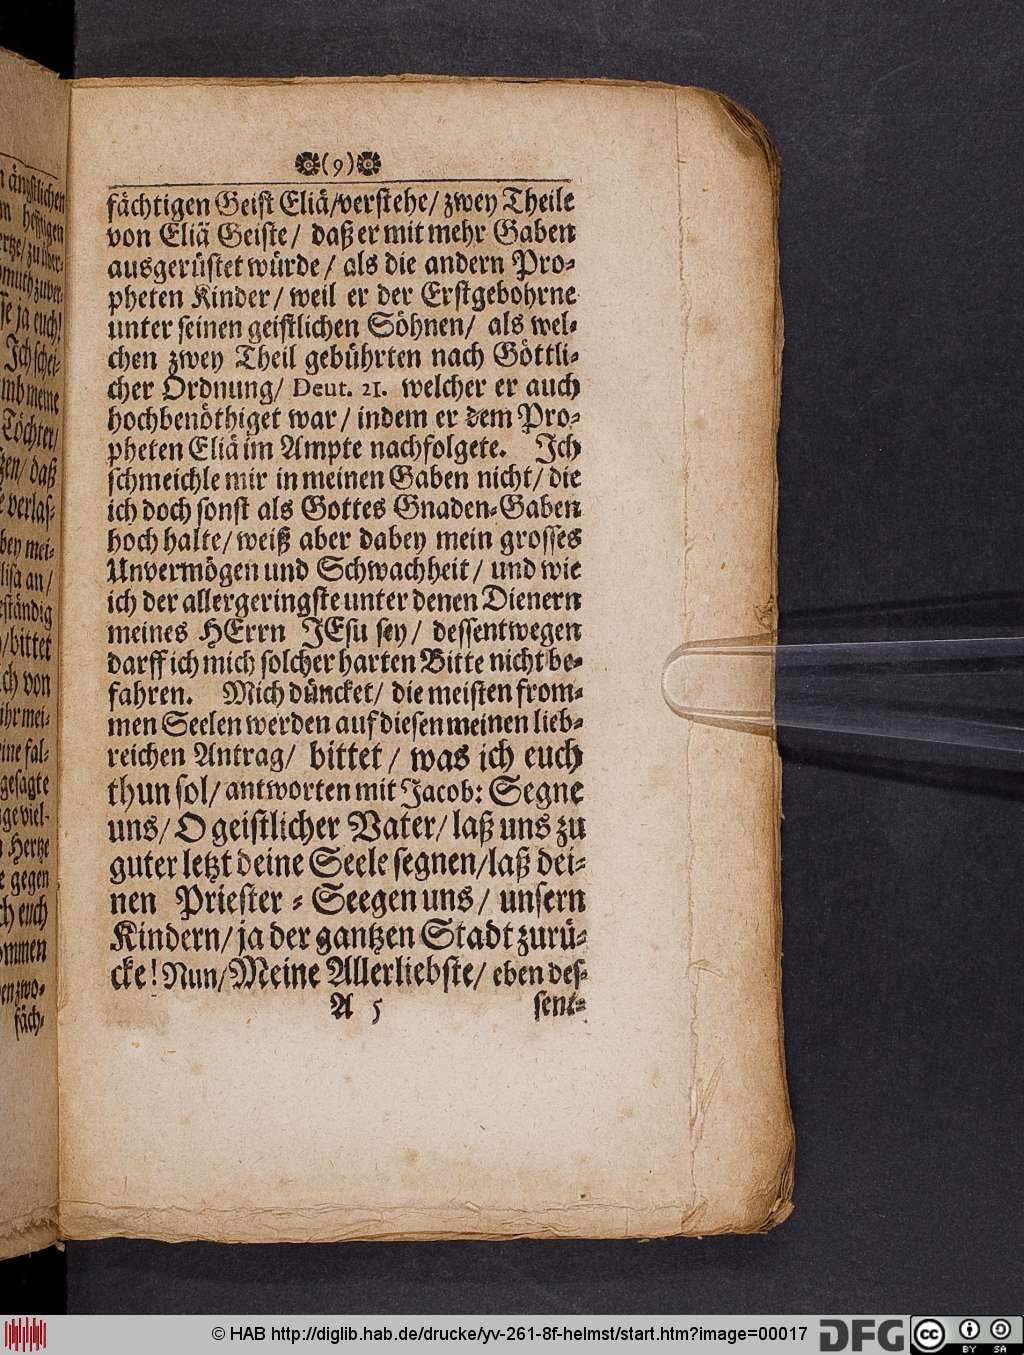 n ängstlichen
hefftigen
muth zuver-
se ja euch!
Ich schei-
umb meine
Töchter/
tzen/ daß
e verlas-
bey mei-
lisa an/
eständig
/bittet
ch von
ihr mei-
ine fal-
gesagte
ge viel-
n Hertze
e gegen
ch euch
ommen
en zwo-
fäch-
(9)
fächtigen Geist Eliä/verstehe/ zwey Theile
von Eliä Geiste/ daß er mit mehr Gaben
ausgerüstet würde/ als die andern Pro-
pheten Kinder/ weil er der Erstgebohrne
unter seinen geistlichen Söhnen/ als wel-
chen zwey Theil gebührten nach Göttli-
cher Ordnung/ Deut. 21. welcher er auch
hochbenöthiget war/ indem er dem Pro-
pheten Eliä im Ampte nachfolgete. Ich
schmeichle mir in meinen Gaben nicht/ die
ich doch sonst als Gottes Gnaden-Gaben
hoch halte/ weiß aber dabey mein grosses
Unvermögen und Schwachheit/ und wie
ich der allergeringste unter denen Dienern
meines HErrn JEsu sey/ dessentwegen
darff ich mich solcher harten Bitte nicht be-
fahren. Mich düncket/ die meisten from-
men Seelen werden auf diesen meinen lieb-
reichen Antrag/ bittet/ was ich euch
thun sol/ antworten mit Jacob: Segne
uns/ O geistlicher Vater/ laß uns zu
guter letzt deine Seele segnen/laß dei-
nen Priester-Seegen uns/ unsern
Kindern/ ja der gantzen Stadt zurü-
cke! Nun/Meine Allerliebste/ eben des-
A 5 sent-
© HAB http://diglib.hab.de/drucke/yv-261-8f-helmst/start.htm?image=00017 DFG cc BY SA